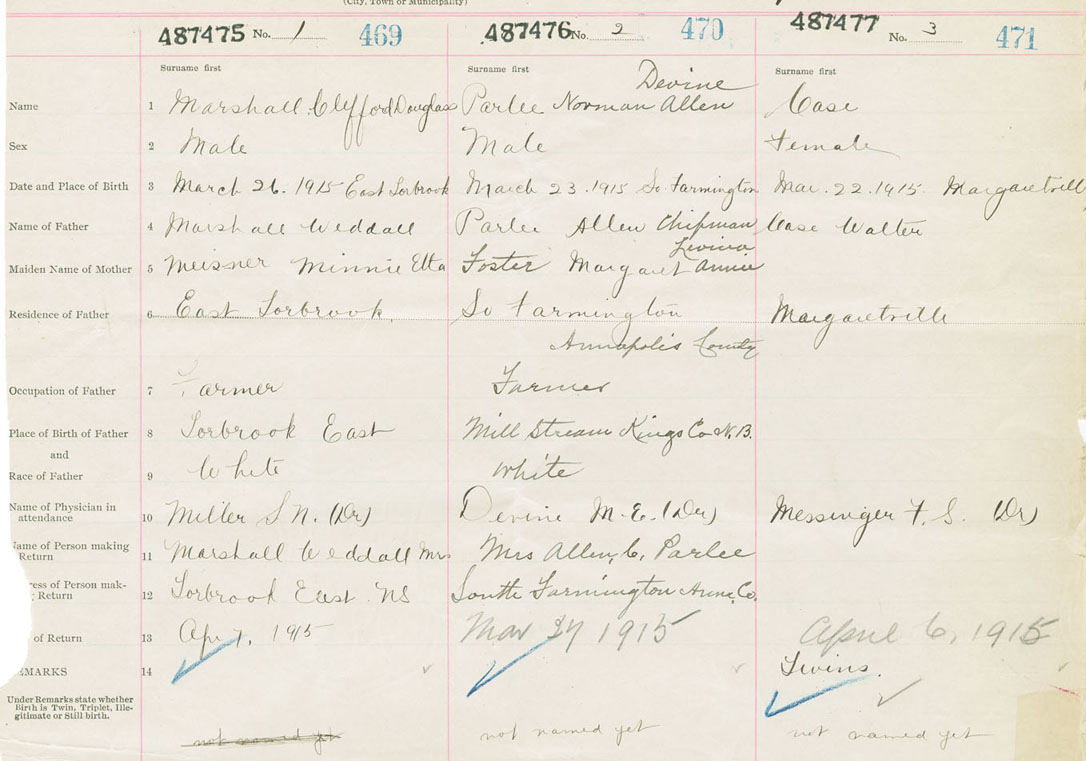 (City, Town or Municipality)
487475 No. 1 469 487476 No. 2 470 487477 No. 3 471
Surname first Surname first Surname first
Devine
Name 1 Marshall Clifford Douglass Parlee Norman Allen Case
Sex 2 Male Male Female
Date and Place of Birth 3 March 26. 1915 East Torbrook March 23. 1915 So Farmington Mar. 22. 1915. Margaretvill
Name of Father 4 Marshall Weddall Parlee Allen Chipman Case Walter
Levina
Maiden Name of Mother 5 Meisner Minnie Etta Foster Margaret Annie
Residence of Father 6 East Torbrook. So Farmington Margaretville
Annapolis County
Occupation of Father 7 Farmer Farmer
Place of Birth of Father 8 Torbrook East Mill Stream Kings Co N.B.
and
Race of Father 9 White White
Name of Physician in
attendance 10 Miller S. N. (Dr) Devine M. E. (Dr) Messinger F. S. (Dr)
Name of Person making
Return 11 Marshall Weddall Mrs Mrs Allen, C. Parlee
ress of Person mak-
; Return 12 Torbrook East NS South Farmington Anna. Co.
of Return 13 Apr 7, 1915 Mar 27 1915 April 6, 1915
EMARKS 14 Twins.
Under Remarks state whether
Birth is Twin, Triplet, Ille-
gitimate or Still birth.
not named yet not named yet not named yet